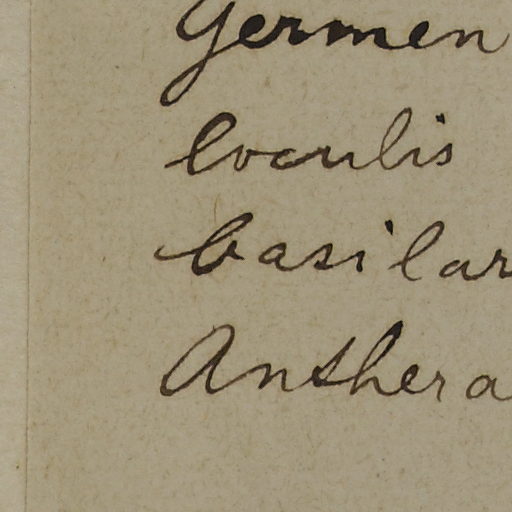 Germen
loculis
basilar
Anthera